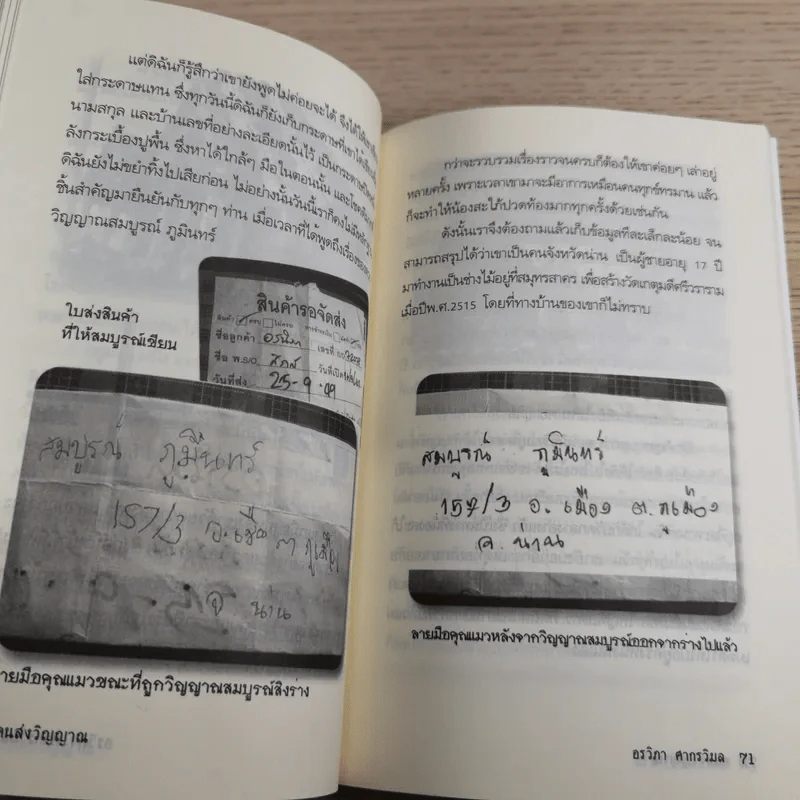 แต่ดิฉันก็รู้สึกว่าเขายังพูดไม่ค่อยจะได้ จึงได้ให้
ใส่กระดาษแทน ซึ่งทุกวันนี้ดิฉันก็ยังเก็บกระดาษที่เขาได้
นามสกุล และบ้านเลขที่อย่างละเอียดนั้นไว้ เป็นกระดาษ
ลังกระเบื้องปูพื้น ซึ่งหาได้ใกล้ๆ มือในตอนนั้น และโชคดี
ดิฉันยังไม่ขยำทิ้งไปเสียก่อน ไม่อย่างนั้นวันนี้เราก็คงไม่มี
ชิ้นสำคัญมายืนยันกับทุกๆ ท่าน เมื่อเวลาที่ได้พูดถึงเรื่อง
วิญญาณสมบูรณ์ ภูมินทร์
ใบส่งสินค้า
ที่ให้สมบูรณ์เขียน
สินค้ารอจัดส่ง
ชื่อลูกค้า
ชื่อ พ.ร.บ.
วันที่ส่ง 25-9-49
สมบูรณ์ ภูมินทร์
157/3 อ.เมือง ต ภูเมือง
จ น่าน
ลายมือคุณแมวขณะที่ถูกวิญญาณสมบูรณ์สิงร่าง
คนส่งวิญญาณ
กว่าจะรวบรวมเรื่องราวจนครบก็ต้องให้เขาค่อยๆ เล่าอยู่
หลายครั้ง เพราะเวลาเขามาจะมีอาการเหมือนคนทุกข์ทรมาน แล้ว
ก็จะทำให้น้องสะใภ้ปวดท้องมากทุกครั้งด้วยเช่นกัน
ดังนั้นเราจึงต้องถามแล้วเก็บข้อมูลทีละเล็กละน้อย จน
สามารถสรุปได้ว่าเขาเป็นคนจังหวัดน่าน เป็นผู้ชายอายุ 17 ปี
มาทำงานเป็นช่างไม้อยู่ที่สมุทรสาคร เพื่อสร้างวัดเกตุมดีศรีวราราม
เมื่อปีพ.ศ.2515 โดยที่ทางบ้านของเขาก็ไม่ทราบ
สมบูรณ์ ภูมินทร์
157/3 อ.เมือง ต.ภูเมือง
จ.น่าน
ลายมือคุณแมวหลังจากวิญญาณสมบูรณ์ออกจากร่างไปแล้ว
อรวิภา ศากรวิมล 71